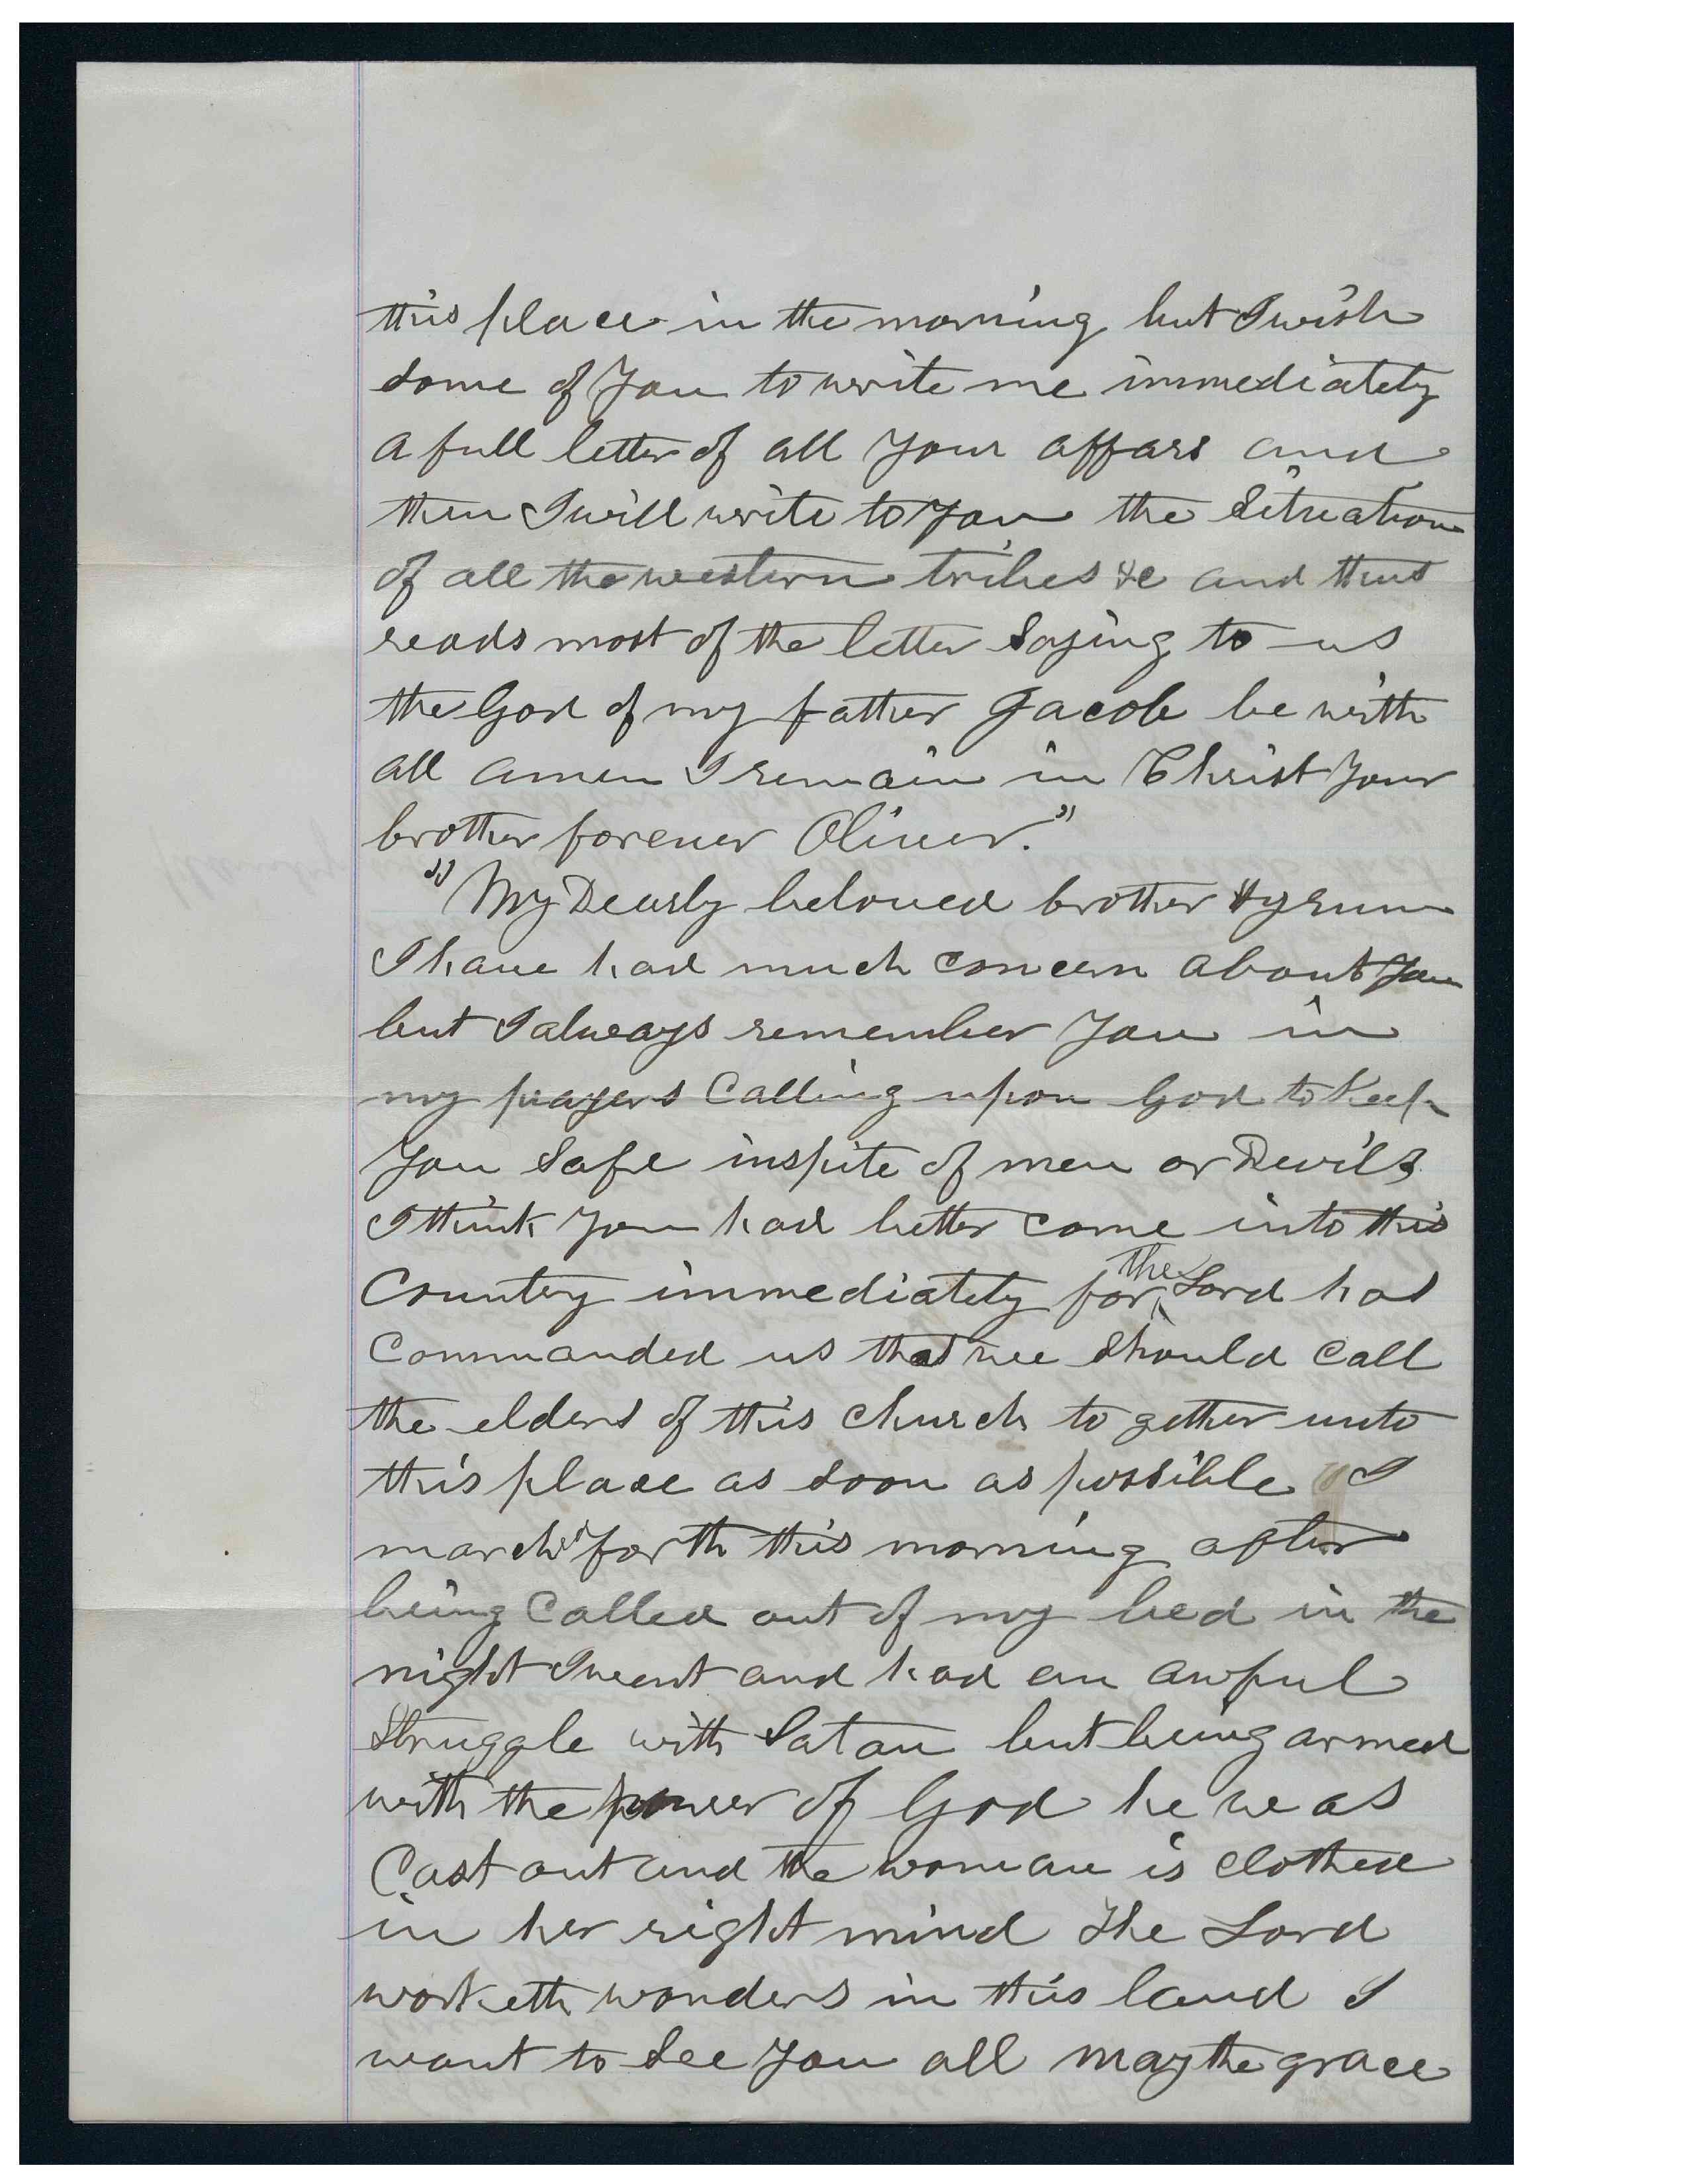 this place in the morning but I wish
some of you to write me immediately
a full letter of all your affars and
then I will write to you the Situation
of all the western tribes &c and thus
reads most of the letter Saying to us
the God of my father Jacob be with
all amen I remain in Christ your
brother forever Oliver."
"My Dearly beloved brother Hyrum
I have had much concern about you
but I always remember you in
my prayers Calling upon God to Keep
you Safe inspite of men or Devils
I think you had better come into this
Country immediately for the Lord has
Commanded us that we Should Call
the elders of this church to gether unto
this place as soon as possible I
march forth this morning after
being Called out of my bed in the
night I went and had an awful
Struggle with Satan but being armed
with the power of God he was
Cast out and the woman is clothed
in her right mind the Lord
worketh wonders in this land I
want to See you all may the grace